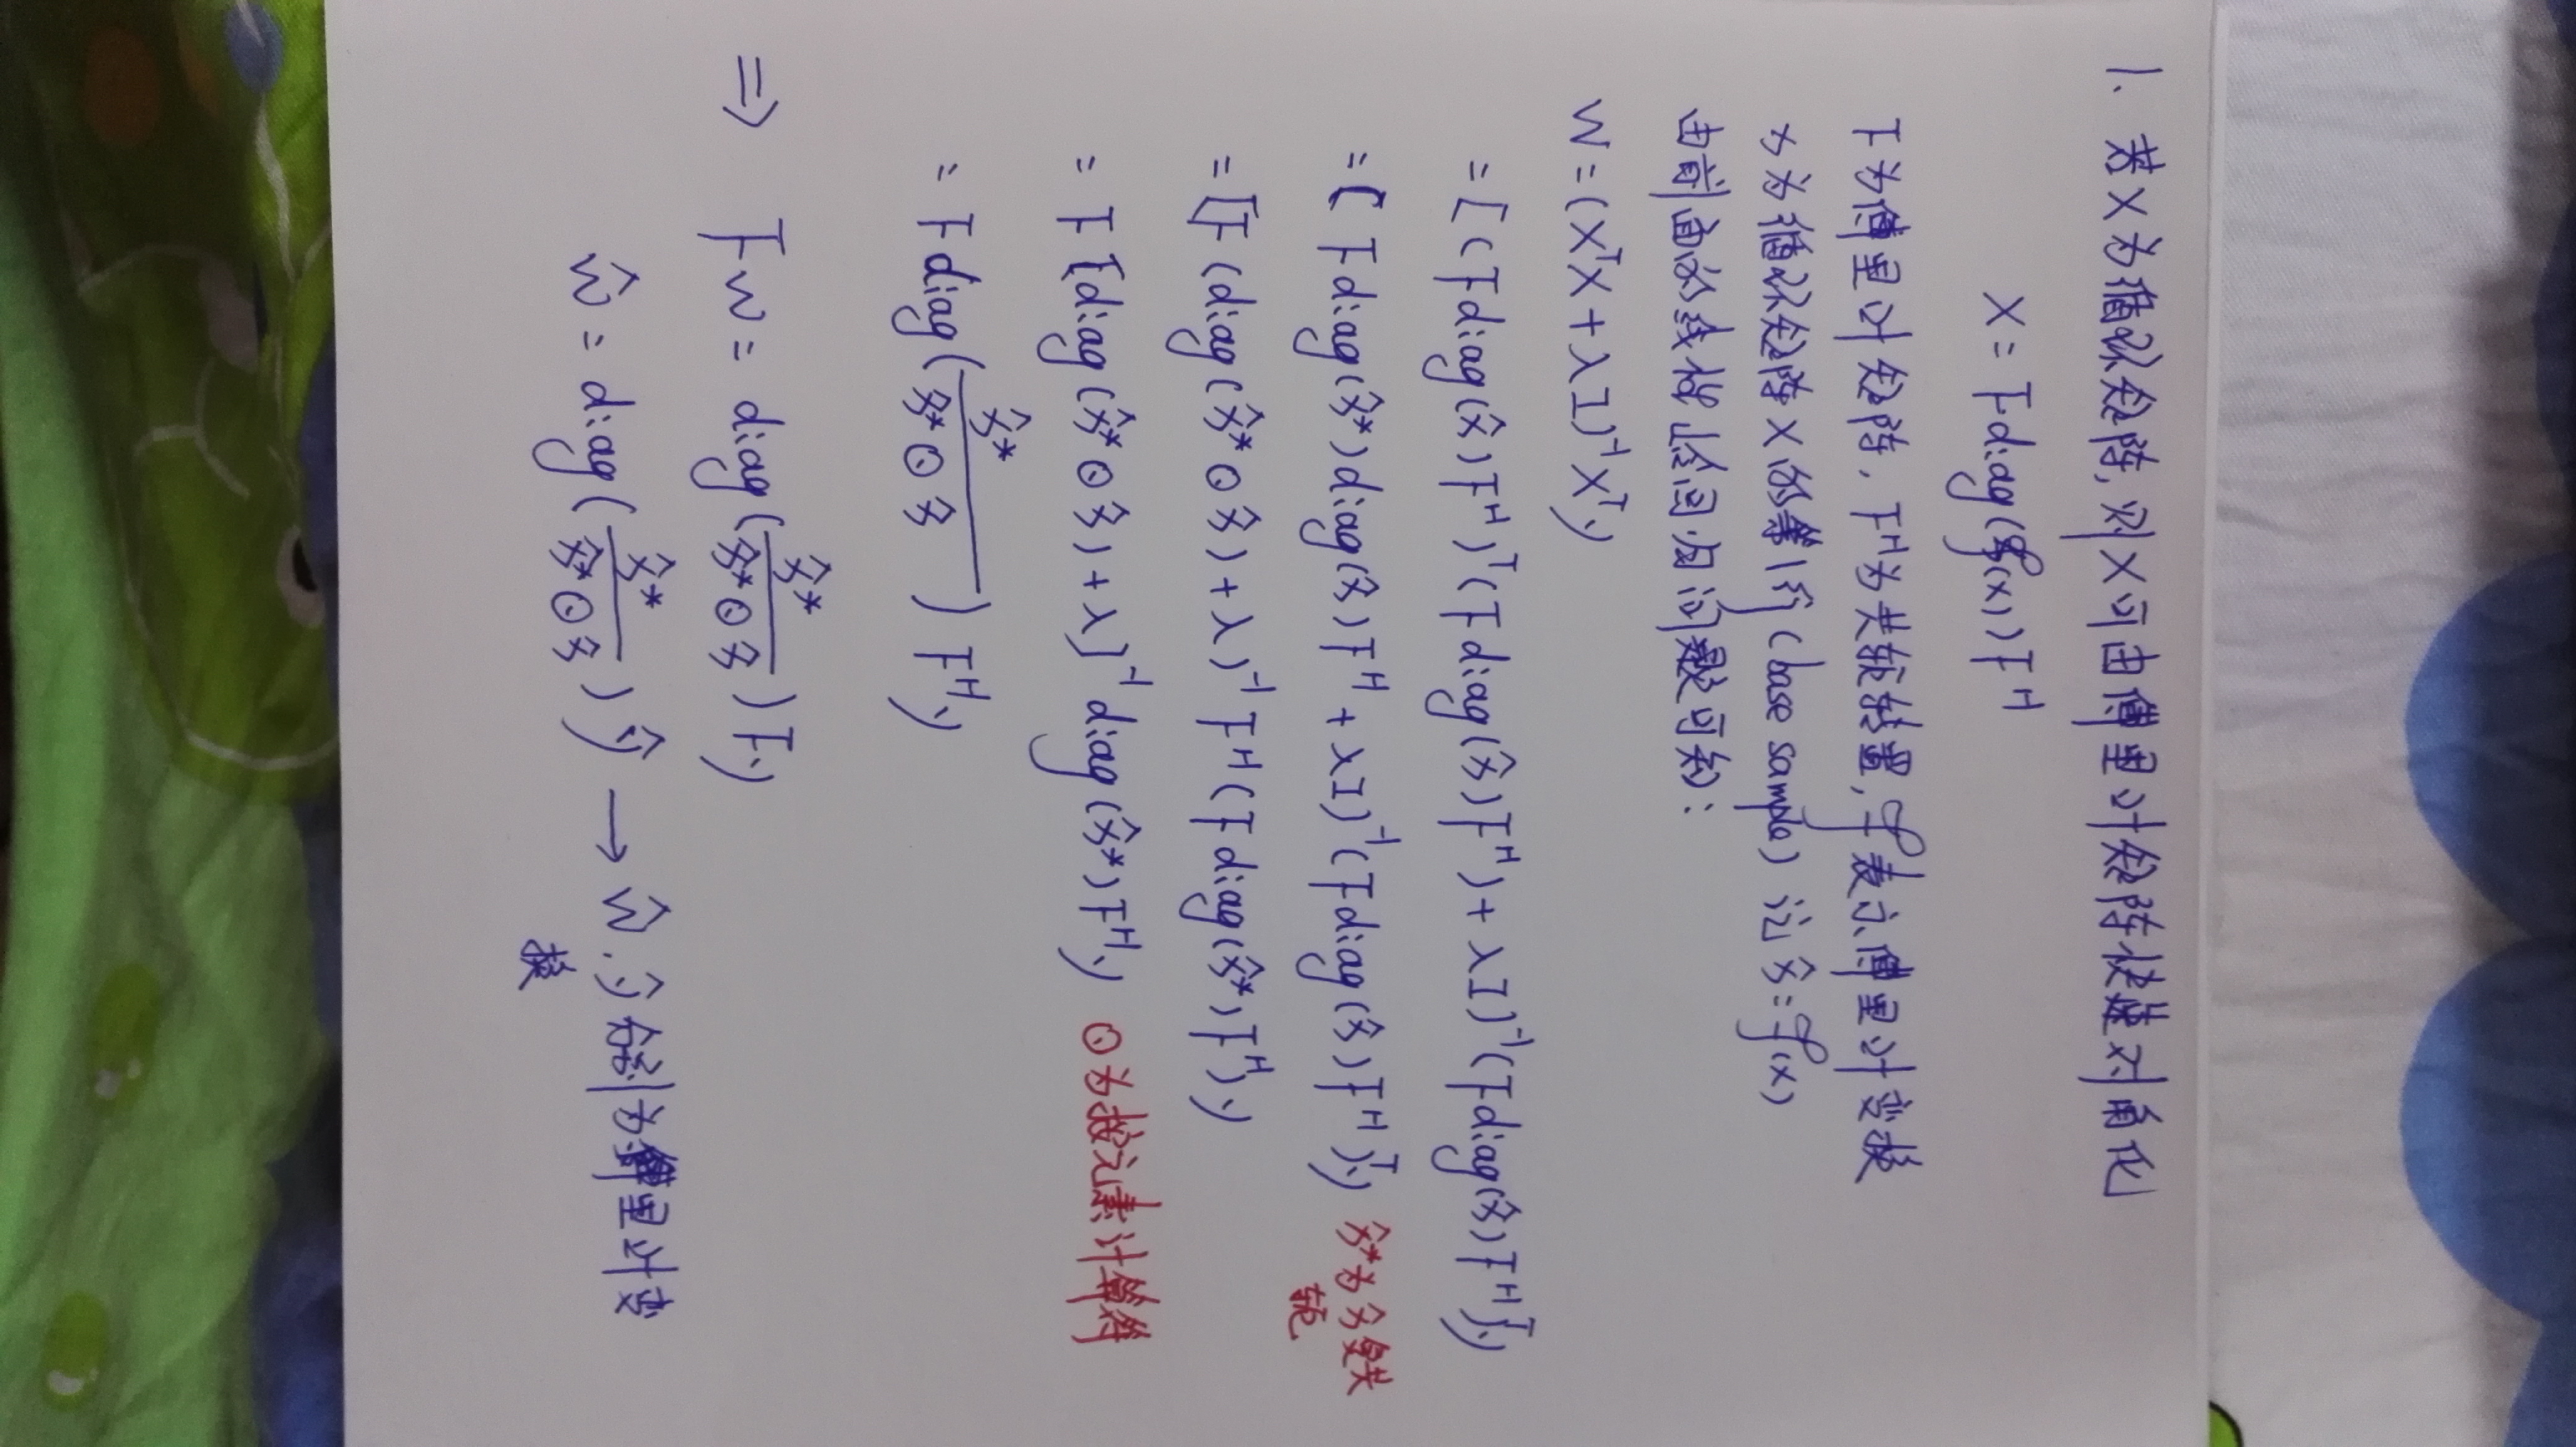 1. 若X为循环矩阵,则X可由傅里叶矩阵快速对角化
X = F diag(ℱ(x)) Fᴴ
F为傅里叶矩阵, Fᴴ为共轭转置, ℱ表示傅里叶变换
x为循环矩阵X的第1行 (base sample) 记 x̂ = ℱ(x)
由前面的线性岭回归问题可知:
W = (XᵀX + λI)⁻¹Xᵀy
= [(F diag(x̂) Fᴴ)ᵀ(F diag(x̂) Fᴴ) + λI]⁻¹(F diag(x̂) Fᴴ)ᵀy
= [F diag(x̂*) diag(x̂) Fᴴ + λI)⁻¹(F diag(x̂) Fᴴ)ᵀy x̂*为x̂复共轭
= [F (diag(x̂*⊙x̂) + λ)⁻¹ Fᴴ (F diag(x̂*) Fᴴ) y
= F [diag(x̂*⊙x̂) + λ]⁻¹ diag(x̂*) Fᴴy ⊙为按元素计算符
= F diag(x̂* / x̂*⊙x̂) Fᴴy
⇒ Fw = diag(x̂* / x̂*⊙x̂) Fy
ŵ = diag(x̂* / x̂*⊙x̂) ŷ → ŵ, ŷ分别为傅里叶变换